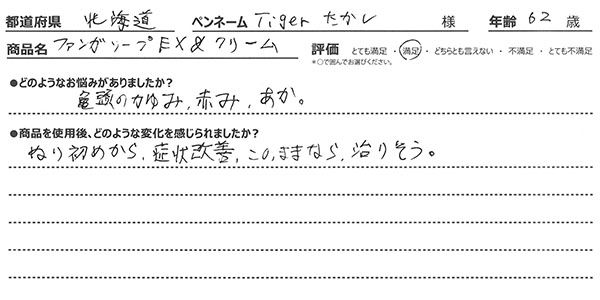 都道府県 北海道 ペンネーム Tiger たかし 様 年齢 62 歳
商品名 ファンガソープEX & クリーム 評価 とても満足 ・ 満足 ・ どちらとも言えない ・ 不満足 ・ とても不満足
*○で囲んでお選びください。
●どのようなお悩みがありましたか?
亀頭のかゆみ, 赤み, あか。
●商品を使用後、どのような変化を感じられましたか?
ぬり初めから, 症状改善, この, ままなら, 治りそう。